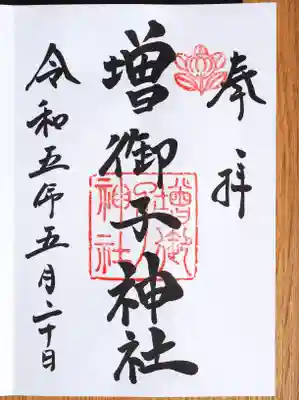 奉拝
増御子神社
増御
子
神社
令和五年五月二十日